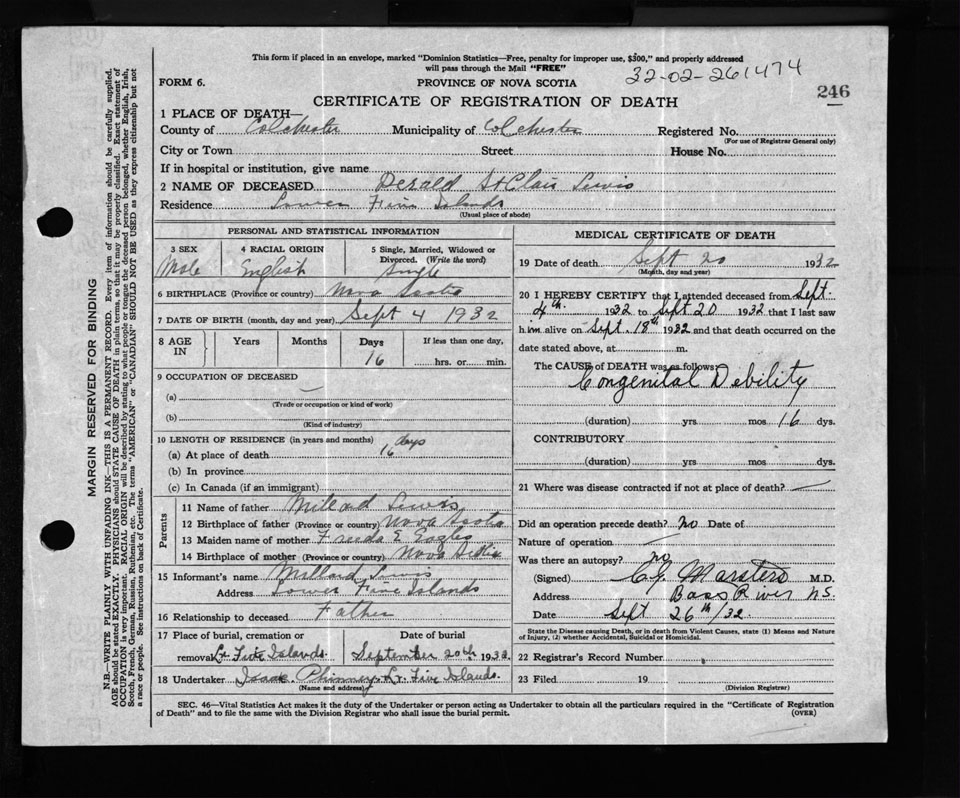 This form if placed in an envelope, marked "Dominion Statistics—Free, penalty for improper use, $300," and properly addressed
will pass through the Mail "FREE"
32-02-261474
FORM 6.
PROVINCE OF NOVA SCOTIA
246
CERTIFICATE OF REGISTRATION OF DEATH
1 PLACE OF DEATH—
County of Colchester Municipality of Colchester Registered No.
(For use of Registrar General only)
City or Town Street House No.
If in hospital or institution, give name
2 NAME OF DECEASED Derald St Clair Lewis
Residence Lower Five Islands
(Usual place of abode)
PERSONAL AND STATISTICAL INFORMATION
3 SEX 4 RACIAL ORIGIN 5 Single, Married, Widowed or
Divorced. (Write the word)
Male English Single
6 BIRTHPLACE (Province or country) Nova Scotia
7 DATE OF BIRTH (month, day and year) Sept 4 1932
8 AGE IN Years Months Days If less than one day,
16 hrs. or min.
9 OCCUPATION OF DECEASED
(a) —
(Trade or occupation or kind of work)
(b)
(Kind of industry)
10 LENGTH OF RESIDENCE (in years and months)
(a) At place of death 16 days
(b) In province
(c) In Canada (if an immigrant)
Parents
11 Name of father Millard Lewis
12 Birthplace of father (Province or country) Nova Scotia
13 Maiden name of mother Freda E Eagles
14 Birthplace of mother (Province or country) Nova Scotia
15 Informant's name Millard Lewis
Address Lower Five Islands
16 Relationship to deceased Father
17 Place of burial, cremation or Date of burial
removal Lr Five Islands. September 20th 1932.
18 Undertaker Isaac Phinney, Lr. Five Islands.
(Name and address)
MEDICAL CERTIFICATE OF DEATH
19 Date of death Sept 20 1932
(Month, day and year)
20 I HEREBY CERTIFY that I attended deceased from Sept.
4th 1932 to Sept 20 1932 that I last saw
him alive on Sept. 18th 1932 and that death occurred on the
date stated above, at m.
The CAUSE of DEATH was as follows:
Congenital Debility
(duration) yrs mos 16 dys.
CONTRIBUTORY
(duration) yrs mos dys.
21 Where was disease contracted if not at place of death? —
Did an operation precede death? no Date of
Nature of operation —
Was there an autopsy? no
(Signed) Marsters M.D.
Address Bass River N.S.
Date Sept 26th/32
State the Disease causing Death, or in death from Violent Causes, state (1) Means and Nature
of Injury, (2) whether Accidental, Suicidal or Homicidal.
22 Registrar's Record Number
23 Filed 19
(Division Registrar)
SEC. 46—Vital Statistics Act makes it the duty of the Undertaker or person acting as Undertaker to obtain all the particulars required in the "Certificate of Registration
of Death" and to file the same with the Division Registrar who shall issue the burial permit.
(OVER)
MARGIN RESERVED FOR BINDING
N.B.—WRITE PLAINLY WITH UNFADING INK—THIS IS A PERMANENT RECORD. Every item of information should be carefully supplied.
AGE should be stated EXACTLY. PHYSICIANS should STATE CAUSE OF DEATH in plain terms, so that it may be properly classified. Exact statement of
OCCUPATION is very important. RACIAL ORIGIN will be described by stating to what people or tongue the deceased person belonged, whether English, Irish,
Scotch, French, German, Russian, Ruthenian, etc. The terms "AMERICAN" or "CANADIAN" SHOULD NOT BE USED as they express citizenship but not
a race or people. See instructions on back of Certificate.